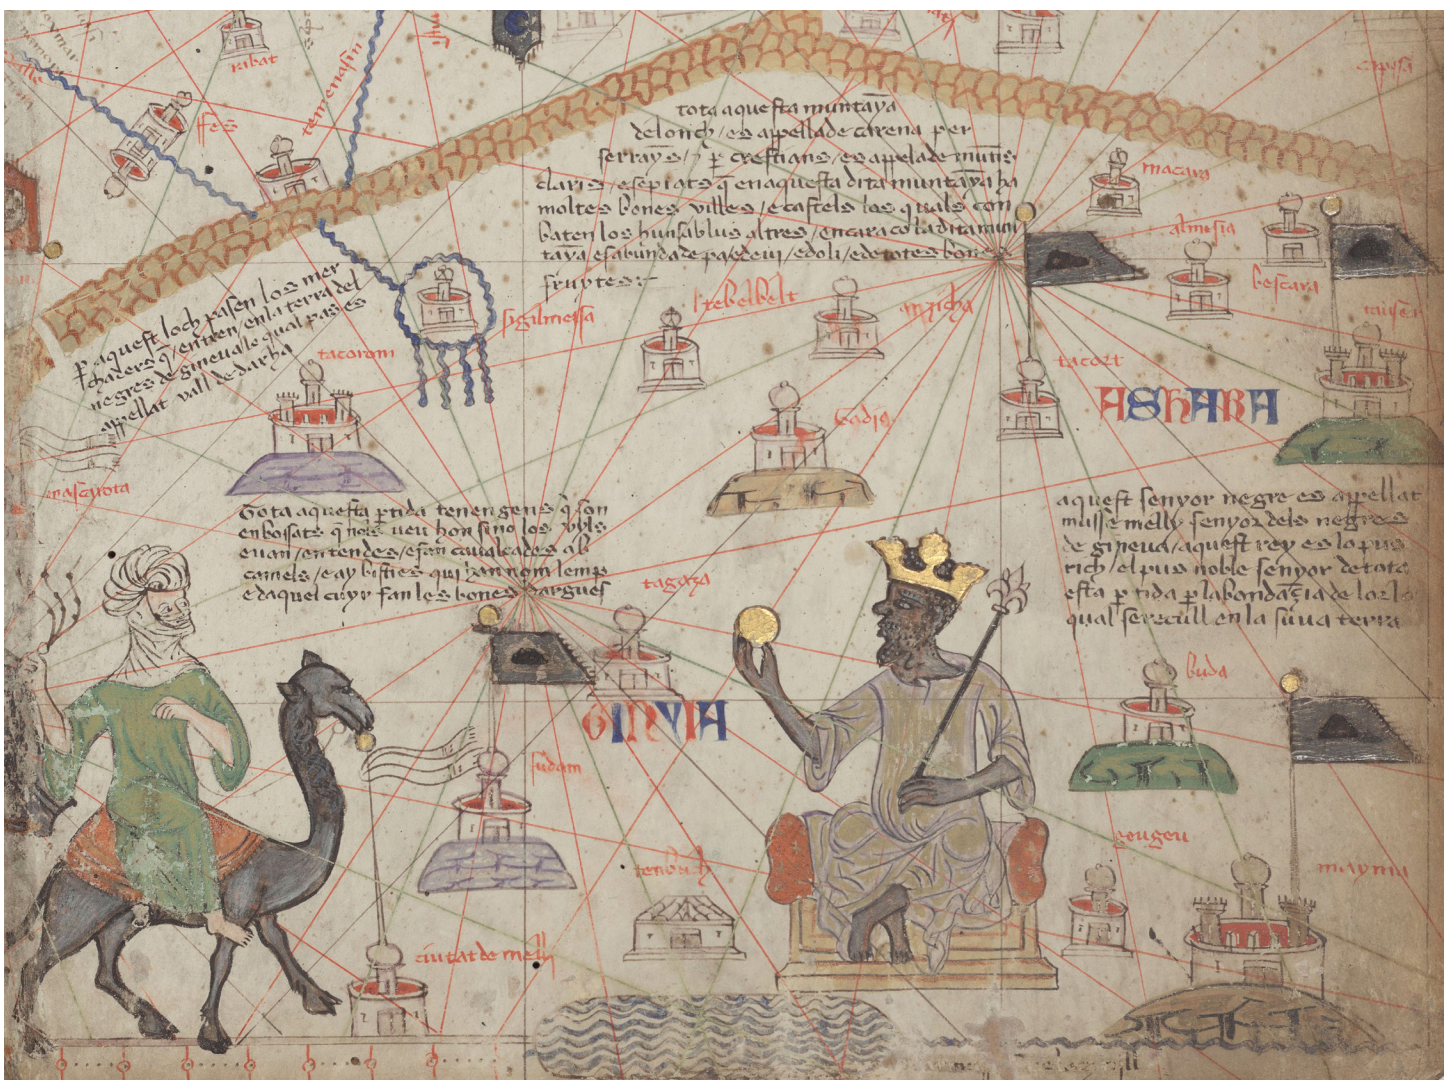 ribat
fes
tota aquesta muntaya
delonch / es appellade carena per
serrayns / e p crestians / es appelade munts
claris / e sepiats q en aquesta dita muntaya ha
moltes bones villes / e castels los quals com
baten los huns ab lus altres / encara co la dita mun
taya es abundade pa e de vi / e doli / e de totes bones
fruytes
macara
almisia
bescara
tacort
ASHARA
stebelbelt
anzicha
sigilmessa
p aquest loch pasen los mer
chaders q / entren / en la terra del
negres de gineua lo qual pas es
appellat vall de darha
tacorom
Gadiq
Tota aquesta ptida tenen gens q son
enbosats q nols veu hom sino los uyls
e uan / en tendes / e fan caualcades ab
camels / e ay bisties qui han nom lemp
e daquel cuyr fan les bones dargues
tagaza
GINYIA
aquest senyor negre es appellat
musse melly senyor dels negres
de gineua / aquest rey es lo pus
rich / el pus noble senyor de tota
esta ptida p labondacia de lor lo
qual se recull en la suua terra
buda
sudam
tenbuch
geugeu
mayma
ciutat de melly